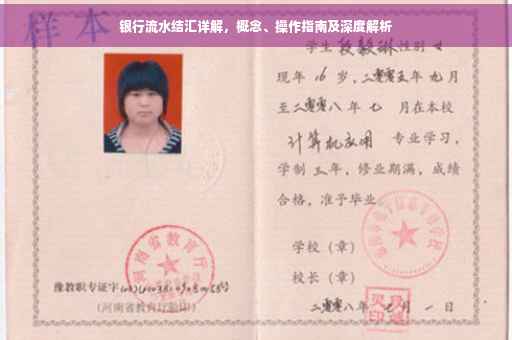 银行流水结汇详解，概念、操作指南及深度解析
样本
学生段毅琳性别女
现年16岁，二零零五年九月
至二零零八年七 月在本校
计算机应用 专业学习，
学制三年，修业期满，成绩
合格，准予毕业。
学校（章）
校长（章）
二零零八年七月一日
河南省教育厅
豫教职专证字
（河南省教育厅验印）